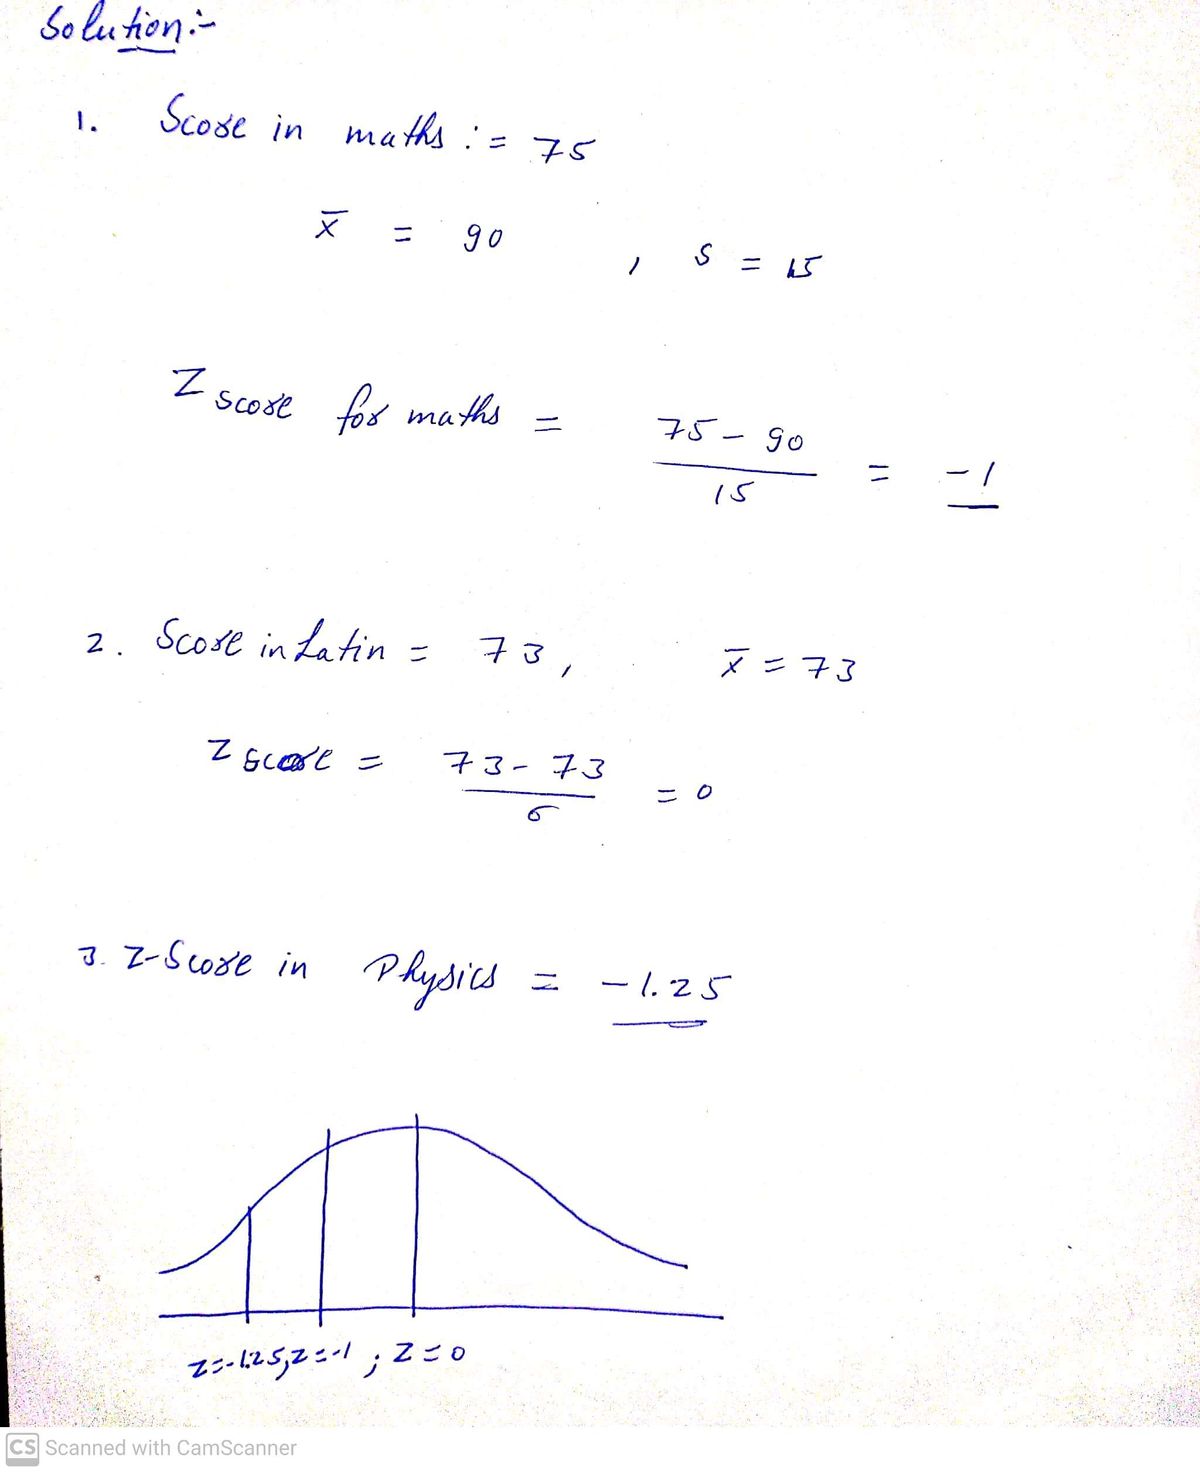 Solution:-
1. Score in maths := 75
x̄ = 90 , S = 15
Z score for maths = 75 - 90
15
= -1
2. Score in Latin = 73, x̄ = 73
Z score = 73 - 73
6
= 0
3. Z-Score in Physics = -1.25
Z=-1.25, Z=-1 ; Z=0
CS Scanned with CamScanner